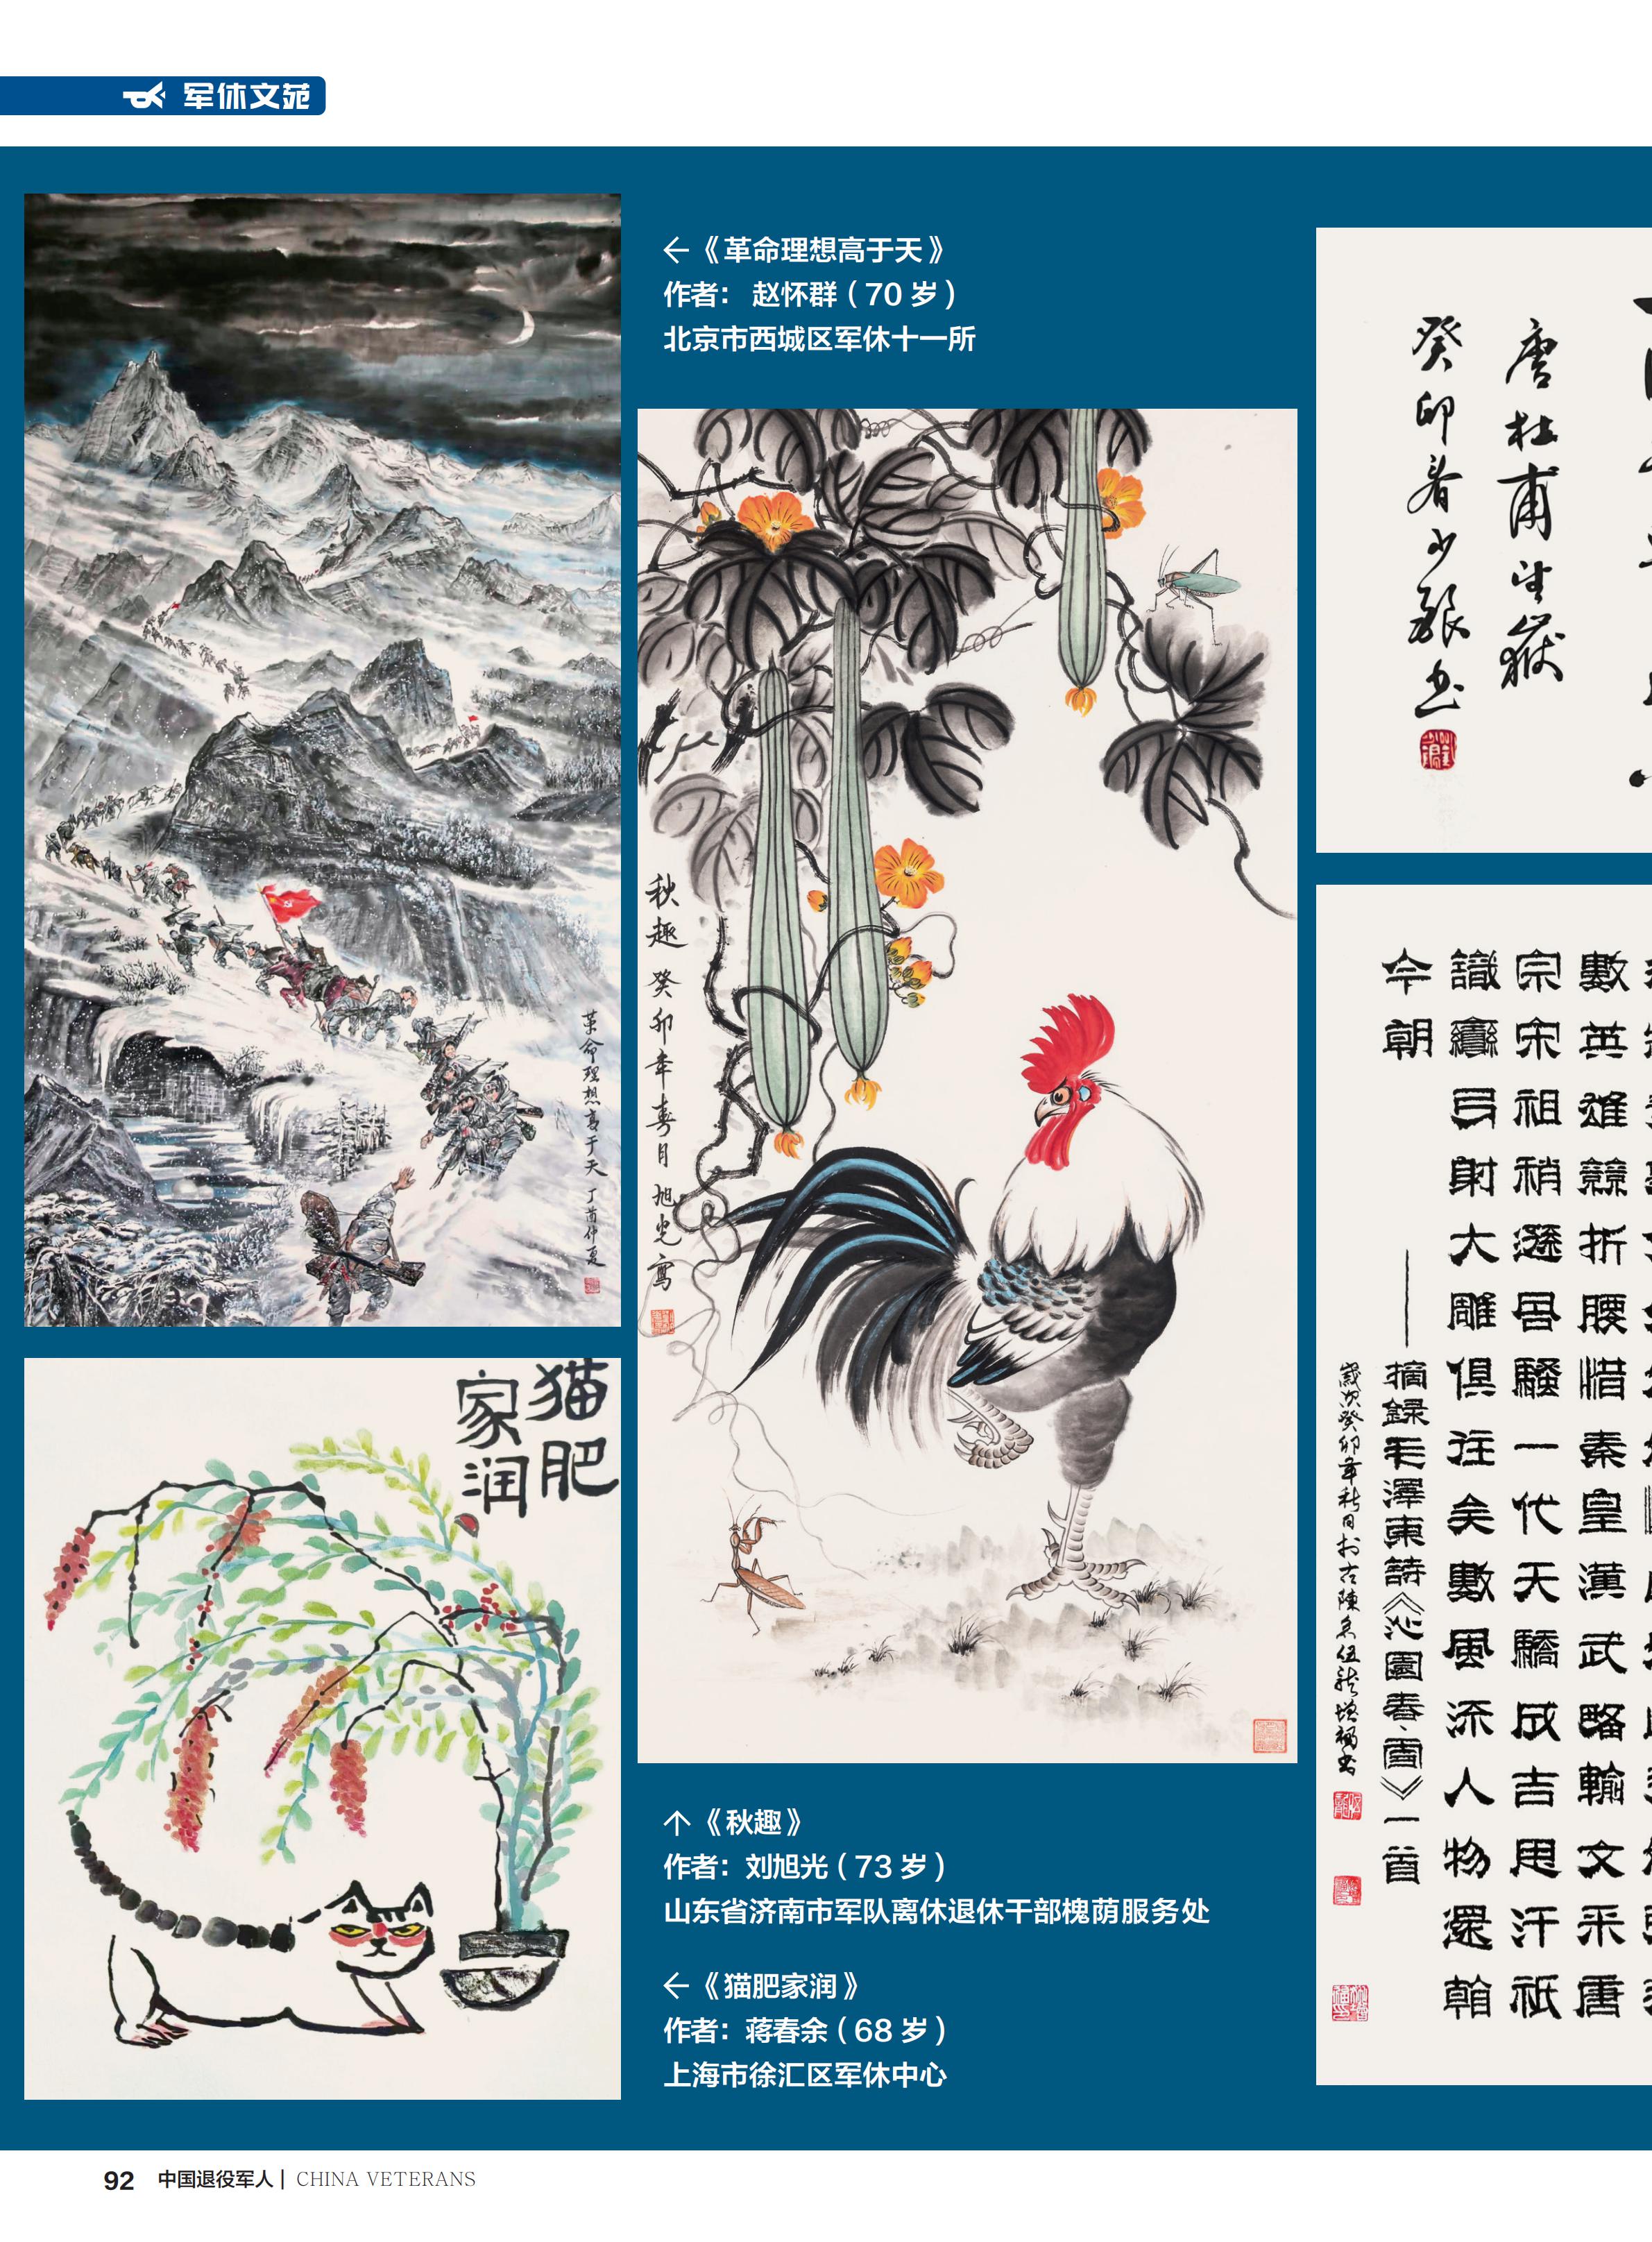 军休文苑
←《革命理想高于天》
作者： 赵怀群（70 岁）
北京市西城区军休十一所
革命理想高于天 丁酉仲夏
秋趣 癸卯年春月 旭光写
猫肥
家润
↑《秋趣》
作者：刘旭光（73 岁）
山东省济南市军队离休退休干部槐荫服务处
←《猫肥家润》
作者：蒋春余（68 岁）
上海市徐汇区军休中心
唐杜甫望嶽
癸卯春少银书
數英雄競折腰惜秦皇漢武略輸文采唐
宗宋祖稍遜風騷一代天驕成吉思汗祇
識彎弓射大雕俱往矣數風流人物還看
今朝
——摘録毛澤東詩《沁園春、雪》一首
歲次癸卯年秋日於古陳倉伍龍增福書
92 中国退役军人｜CHINA VETERANS